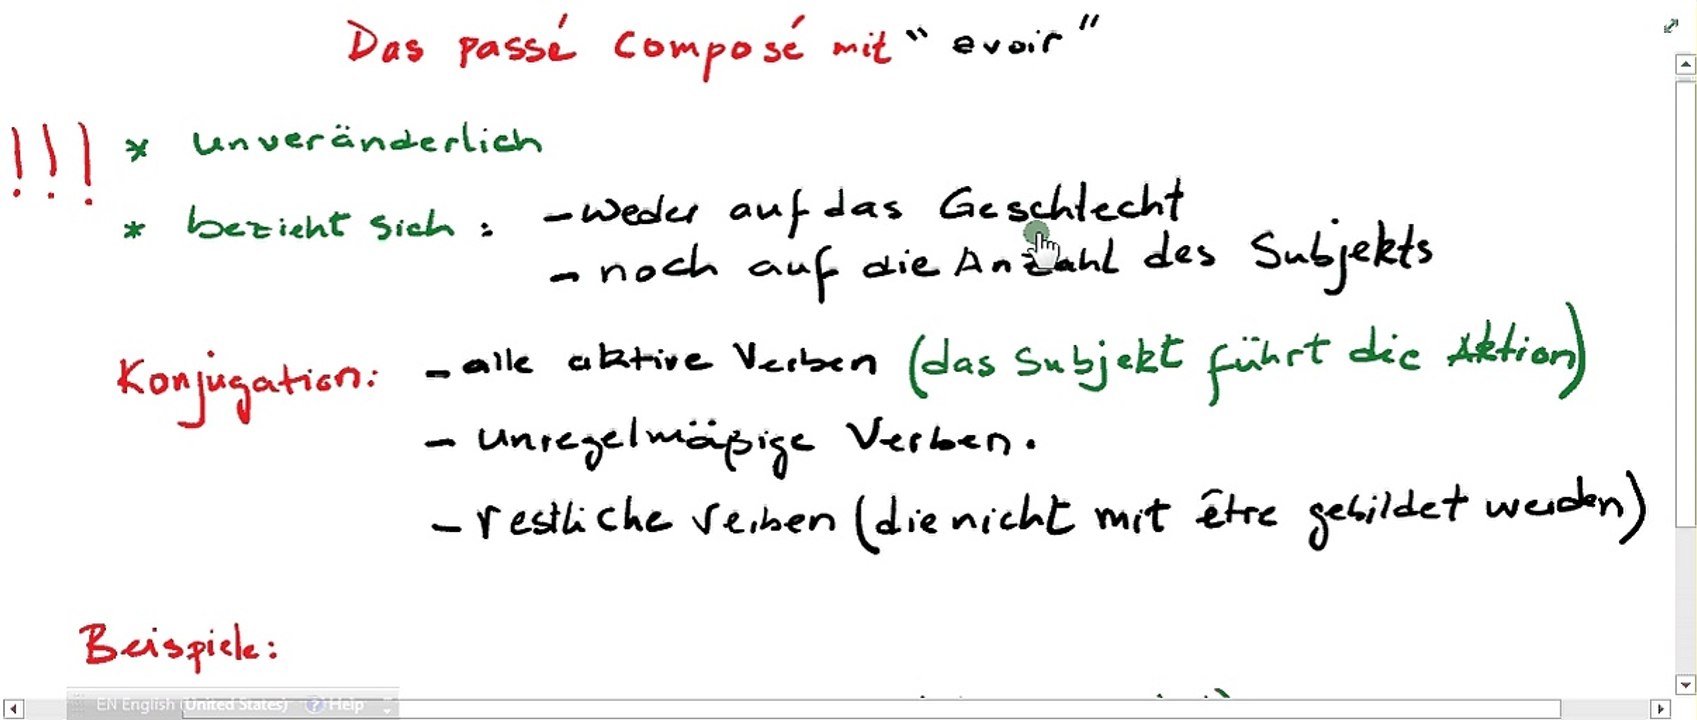 Das passé composé mit "evoir"
!!! * unveränderlich
* bezieht sich : - weder auf das Geschlecht
- noch auf die Anzahl des Subjekts
Konjugation: - alle aktive Verben (das Subjekt führt die Aktion)
- unregelmäßige Verben.
- restliche Verben (die nicht mit être gebildet werden)
Beispiele:
EN English (United States) ? Help